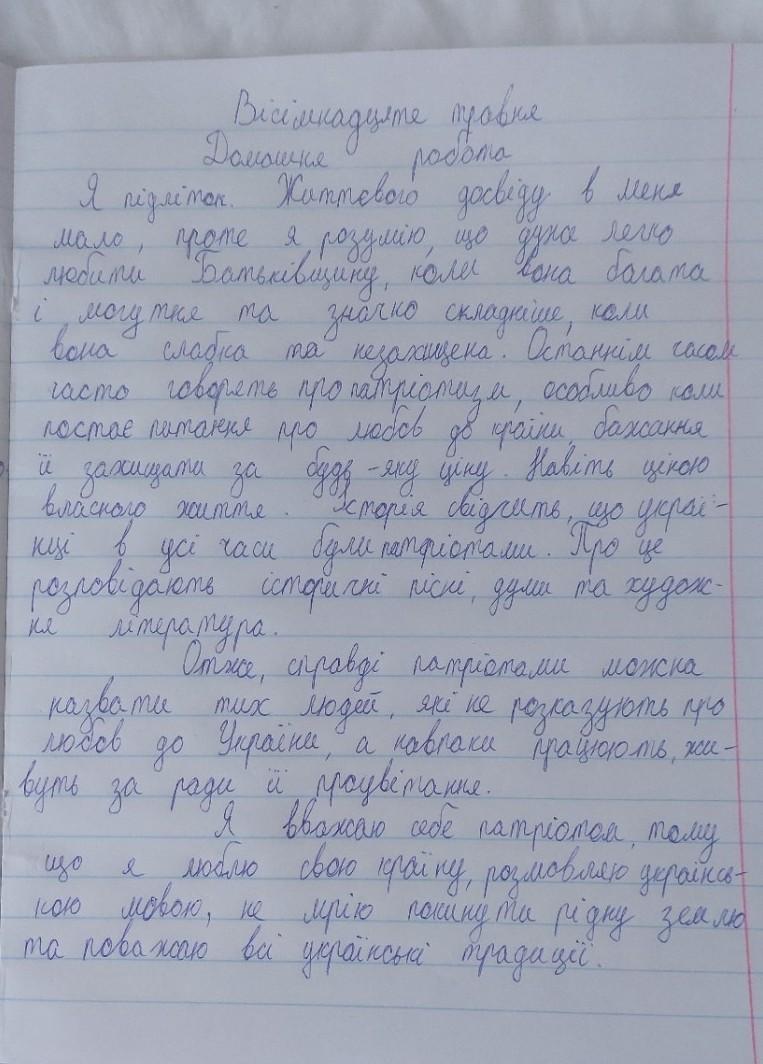 Вісімнадцяте травня
Домашня робота
Я підліток. Життєвого досвіду в мене
мало, проте я розумію, що дуже легко
любити Батьківщину, коли вона багата
і могутня та значно складніше, коли
вона слабка та незахищена. Останнім часом
часто говорять про патріотизм, особливо коли
постає питання про любов до країни, бажання
її захищати за будь-яку ціну. Навіть ціною
власного життя. Історія свідчить, що украї-
нці в усі часи були патріотами. Про це
розповідають історичні пісні, думи та худож-
ня література.
Отже, справді патріотами можна
назвати тих людей, які не розказують про
любов до України, а навпаки працюють, жи-
вуть за ради її процвітання.
Я вважаю себе патріотом, тому
що я люблю свою країну, розмовляю українсь-
кою мовою, не мрію покинути рідну землю
та поважаю всі українські традиції.